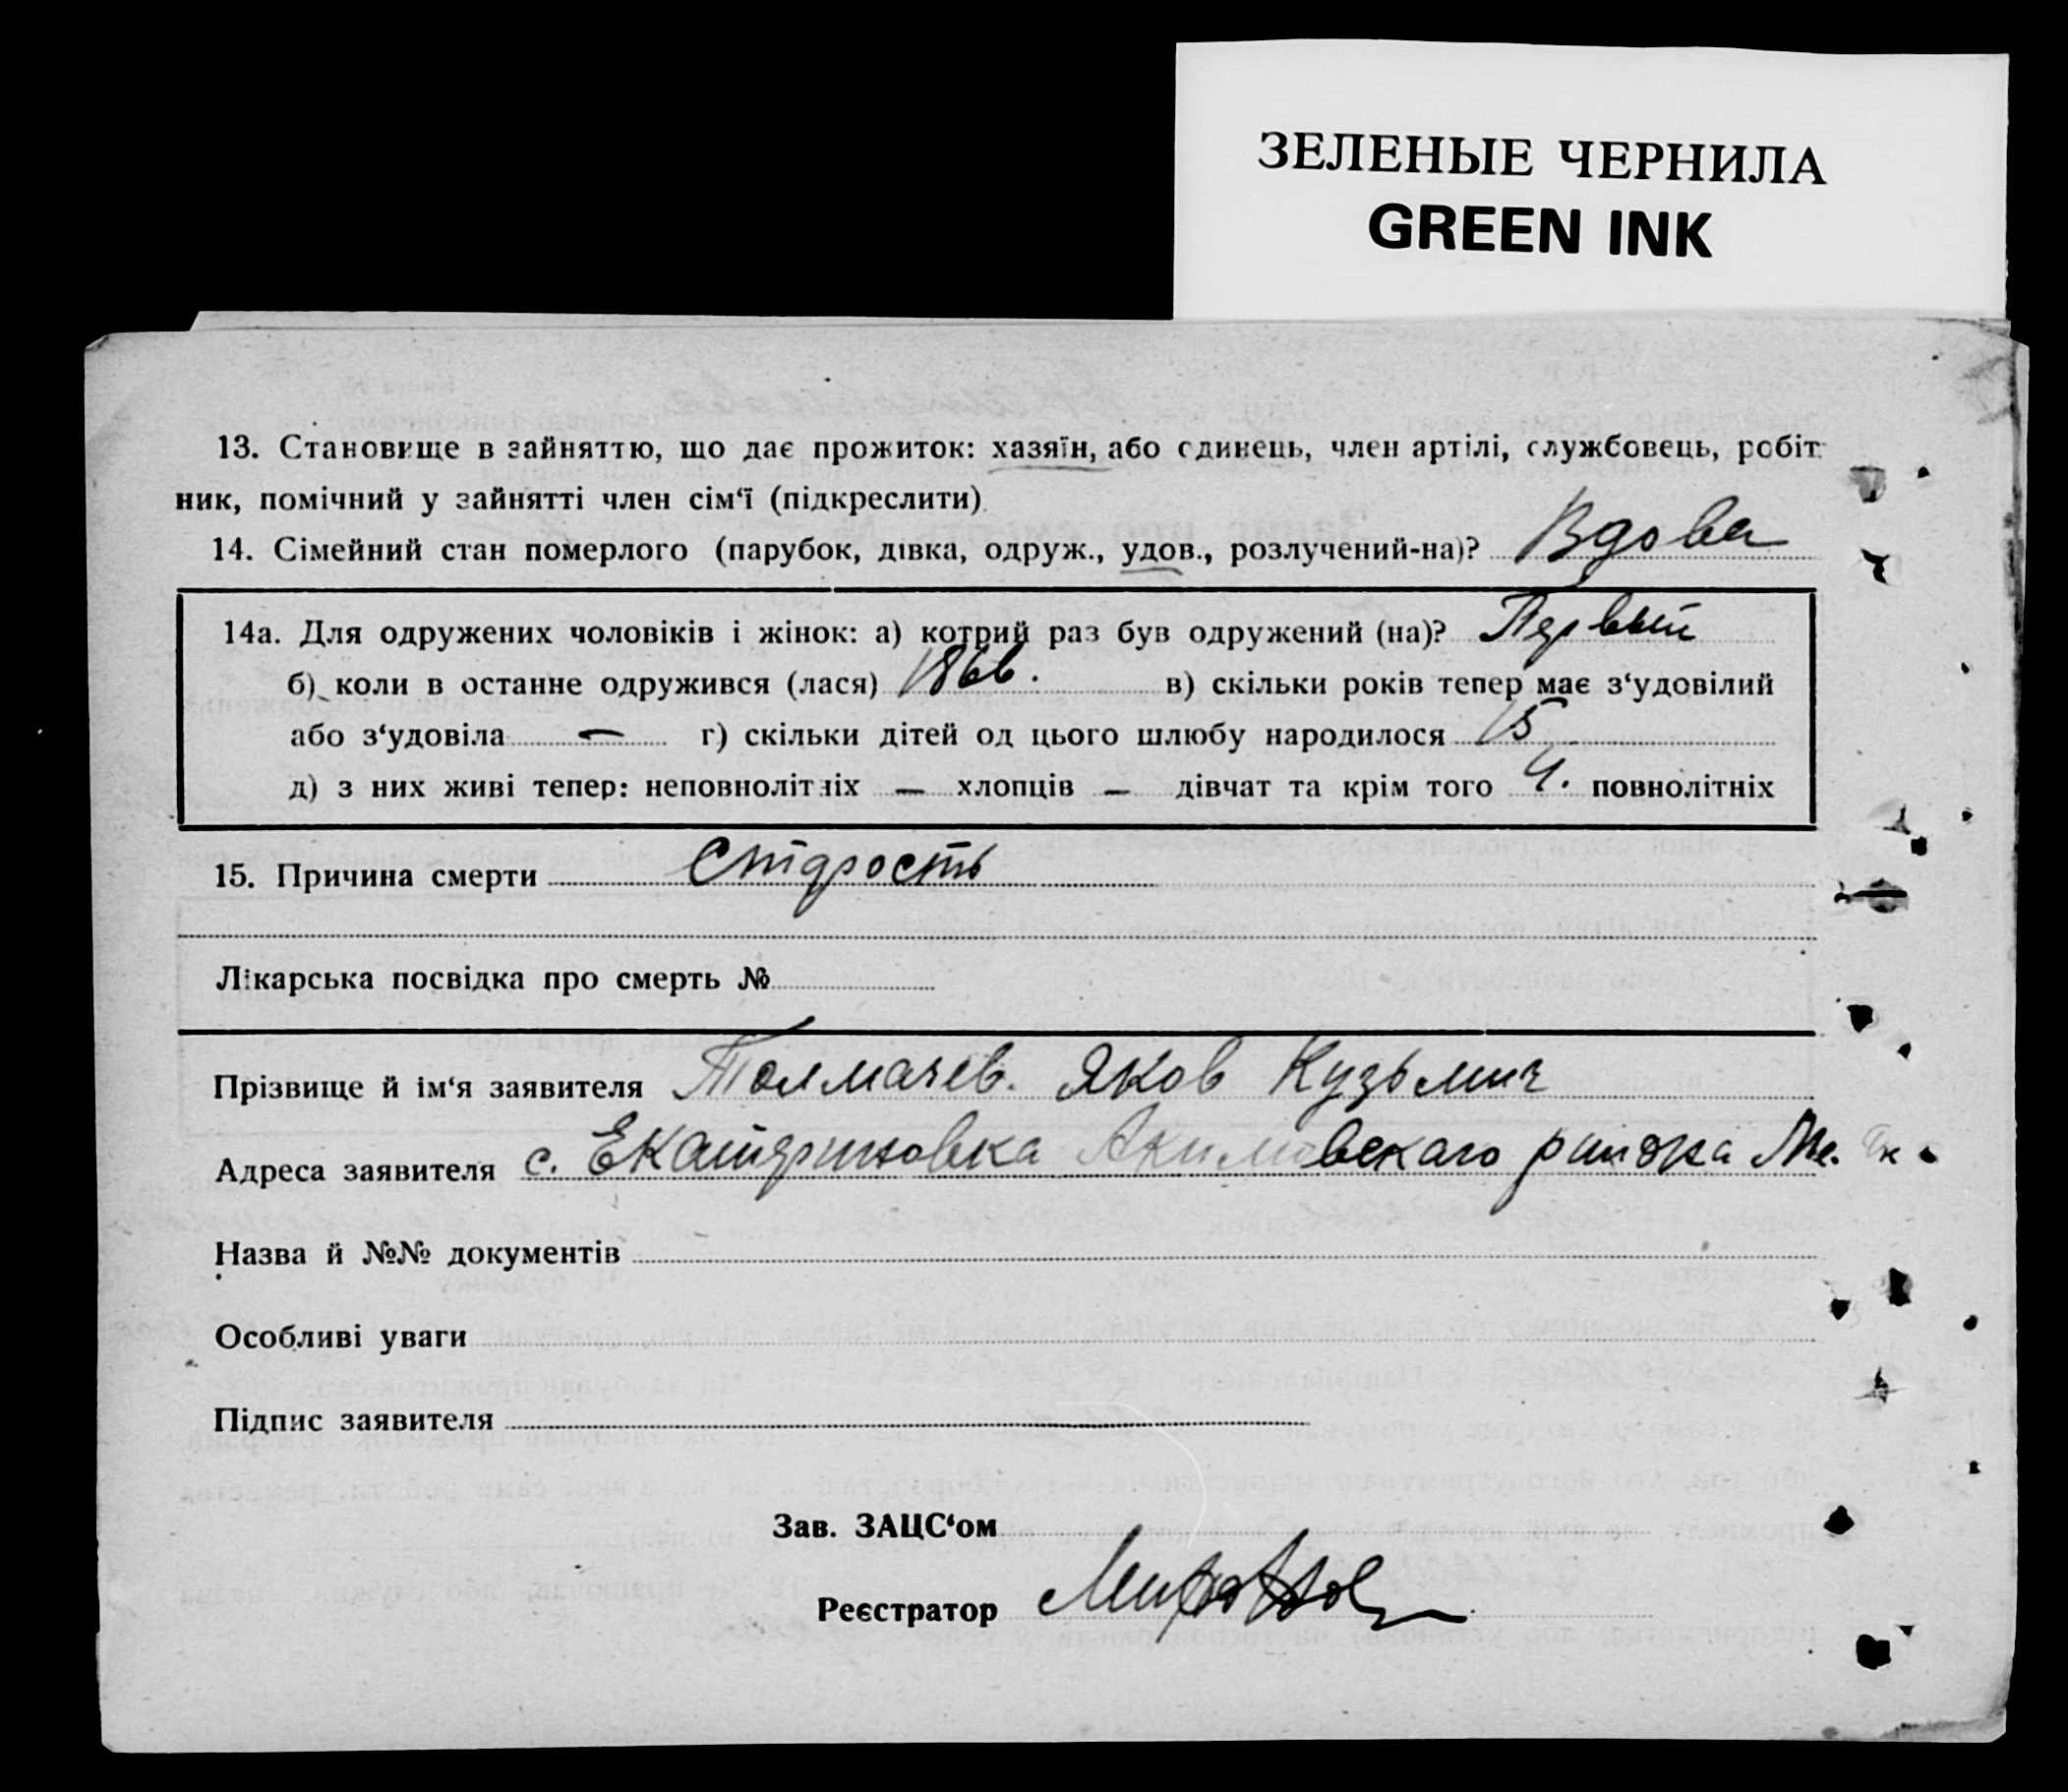 ЗЕЛЕНЫЕ ЧЕРНИЛА
GREEN INK
13. Становище в зайняттю, що дає прожиток: хазяїн, або єдинець, член артілі, службовець, робіт-
ник, помічний у зайнятті член сім‘ї (підкреслити)
14. Сімейний стан померлого (парубок, дівка, одруж., удов., розлучений-на)? Вдова
14а. Для одружених чоловіків і жінок: а) котрий раз був одружений (на)? Первый
б) коли в останне одружився (лася) 1866. в) скільки років тепер має з‘удовілий
або з‘удовіла — г) скільки дітей од цього шлюбу народилося 15
д) з них живі тепер: неповнолітніх — хлопців — дівчат та крім того 4. повнолітніх
15. Причина смерти Старость
Лікарська посвідка про смерть №
Прізвище й ім‘я заявителя Толмачев. Яков Кузьмич
Адреса заявителя с. Екатериновка Акимовскаго района Ме.
Назва й №№ документів
Особливі уваги
Підпис заявителя
Зав. ЗАЦС‘ом
Реєстратор